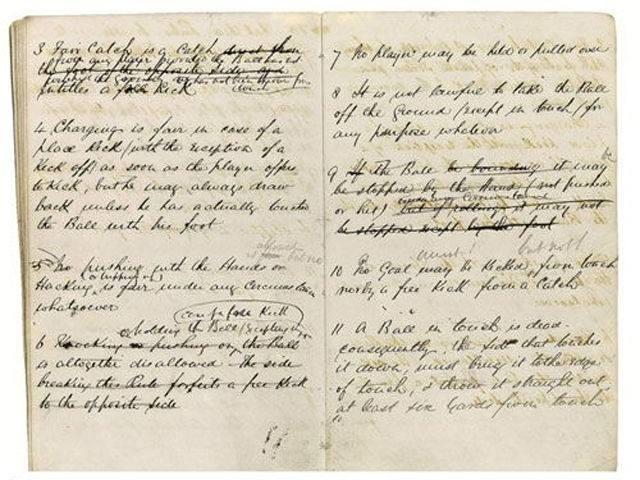 3 Fair Catch is a Catch direct from
from any player provided the Ball has not
the foot of the opposite side and
touched the ground or has not been thrown from
touch
entitles a free Kick
4 Charging is fair in case of a
place Kick (with the exception of a
Kick off) as soon as the player offers
to Kick, but he may always draw
back unless he has actually touched
the Ball with his foot
5 No pushing with the Hands or
Hacking, is fair under any Circumstances
whatsoever
holding the Ball
6 Knocking or pushing on the Ball
is altogether disallowed The side
breaking this Rule forfeits a free Kick
to the opposite side
7 No player may be held or pulled over
8 It is not lawful to take the Ball
off the Ground (except in touch) for
any purpose whatever
9 If the Ball be bounding it may be
be stopped by the Hand (not pushed
or hit) but if rolling it may not
be stopped except by the foot
must! but not
10 No Goal may be Kicked from touch
nor by a free Kick from a Catch
11 A Ball in touch is dead
consequently, the side that touches
it down, must bring it to the edge
of touch, & throw it straight out,
at least six yards from touch